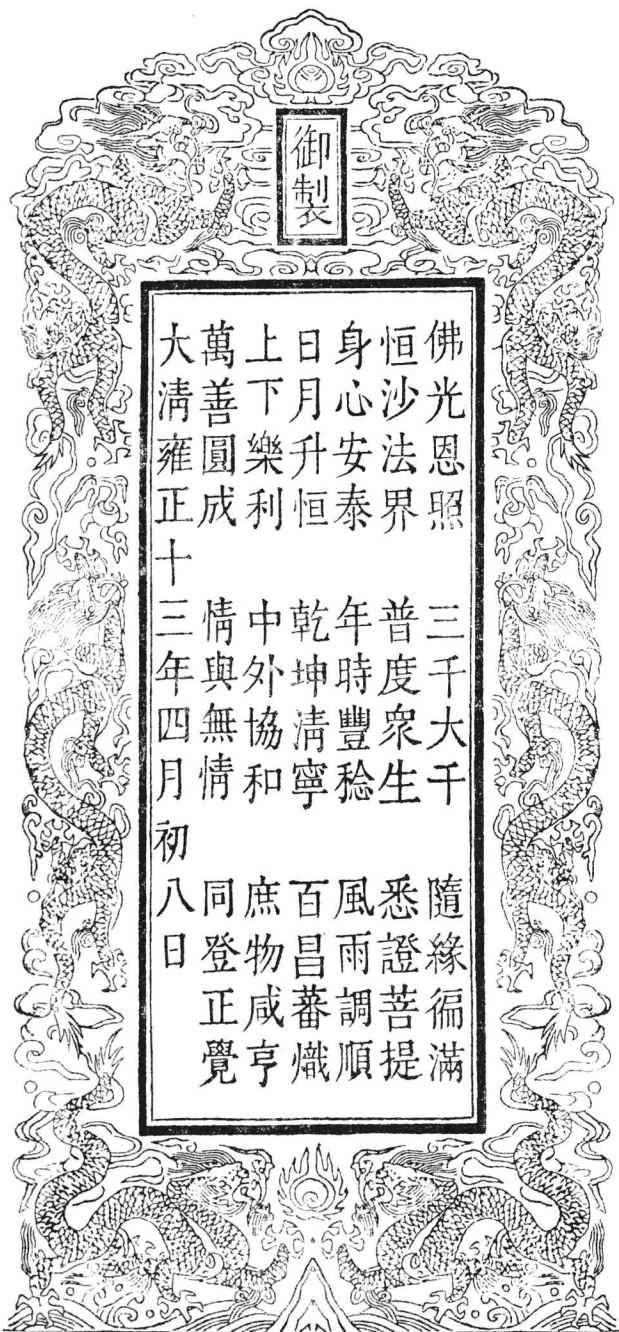 御製
佛光恩照　三千大千　隨緣徧滿
恒沙法界　普度衆生　悉證菩提
身心安泰　年時豐稔　風雨調順
日月升恒　乾坤清寧　百昌蕃熾
上下樂利　中外協和　庶物咸亨
萬善圓成　情與無情　同登正覺
大清雍正十三年四月初八日